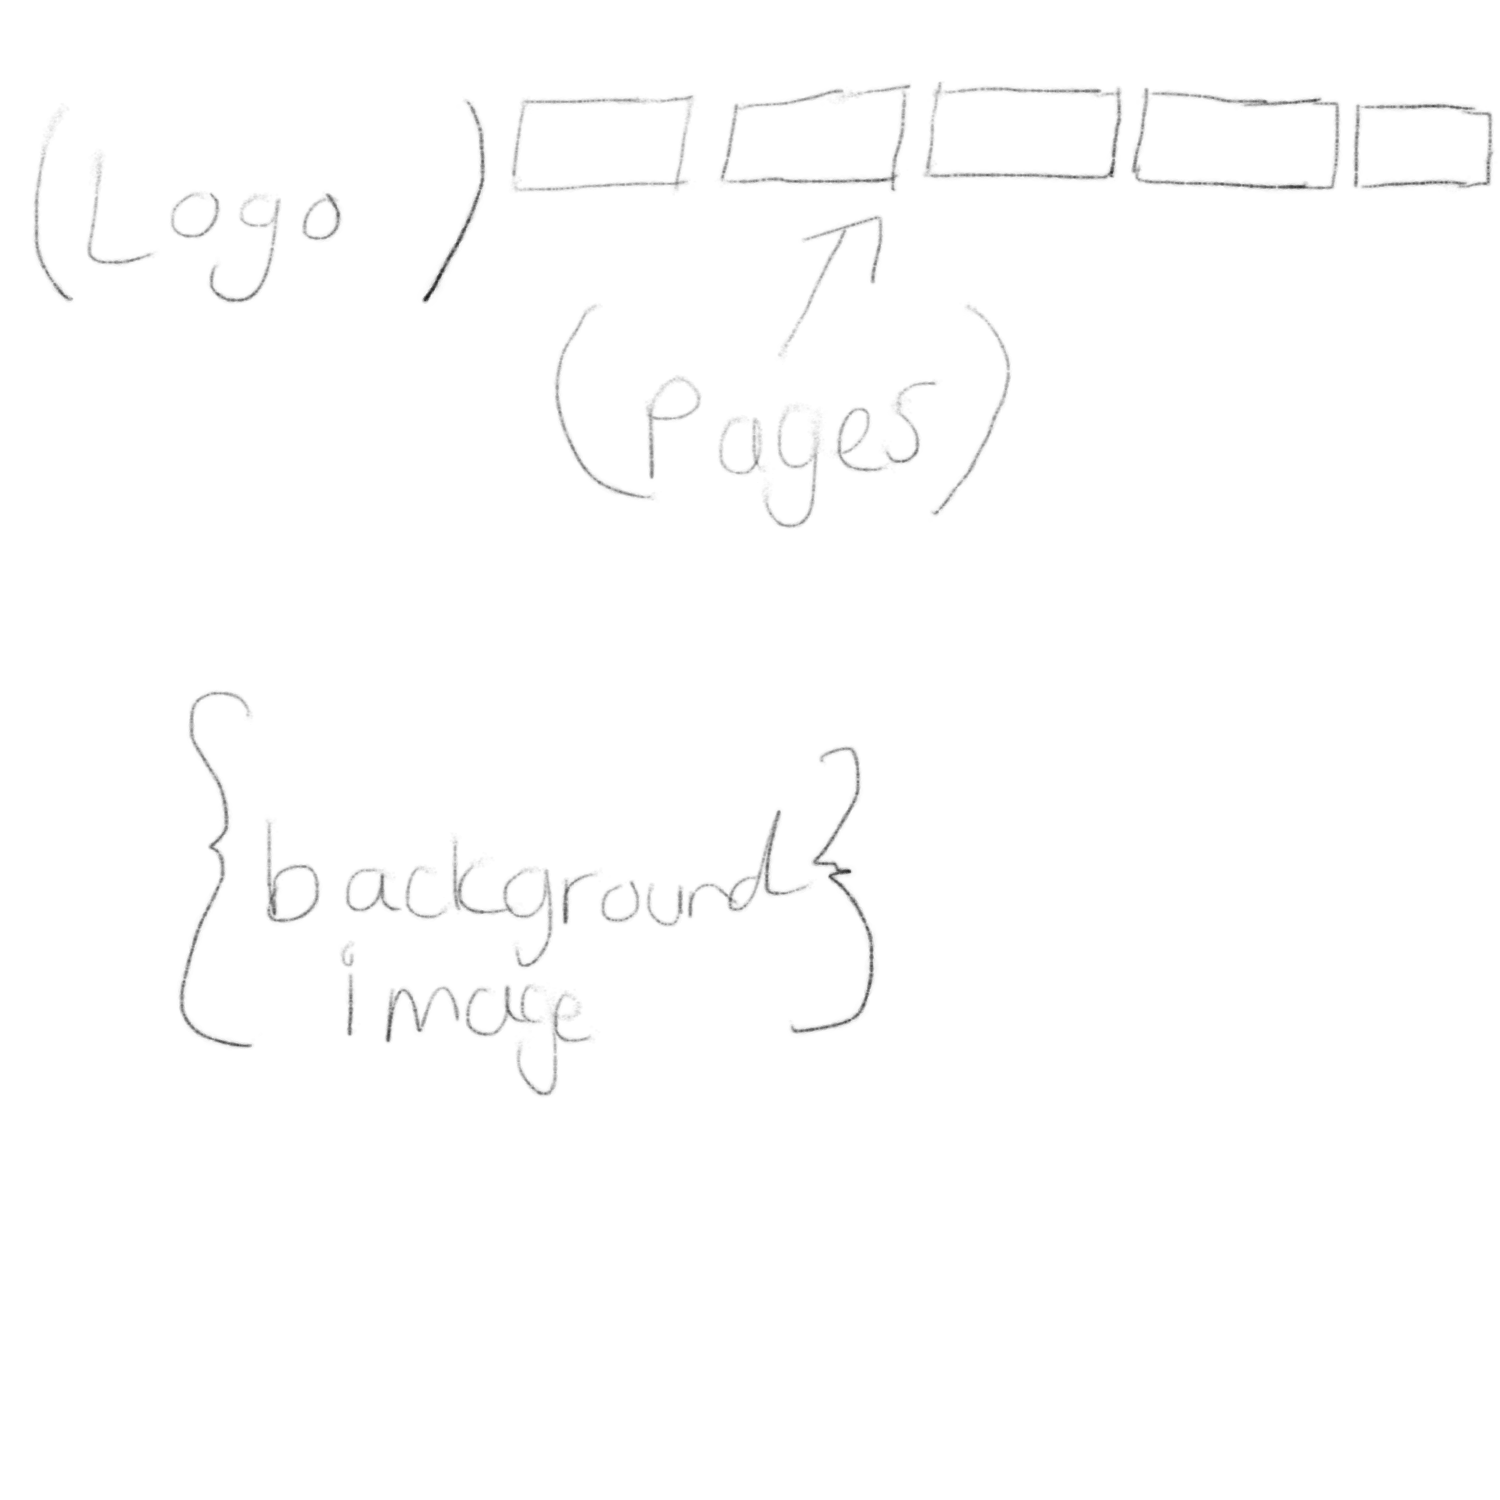 (Logo)
(Pages)
{background
image}